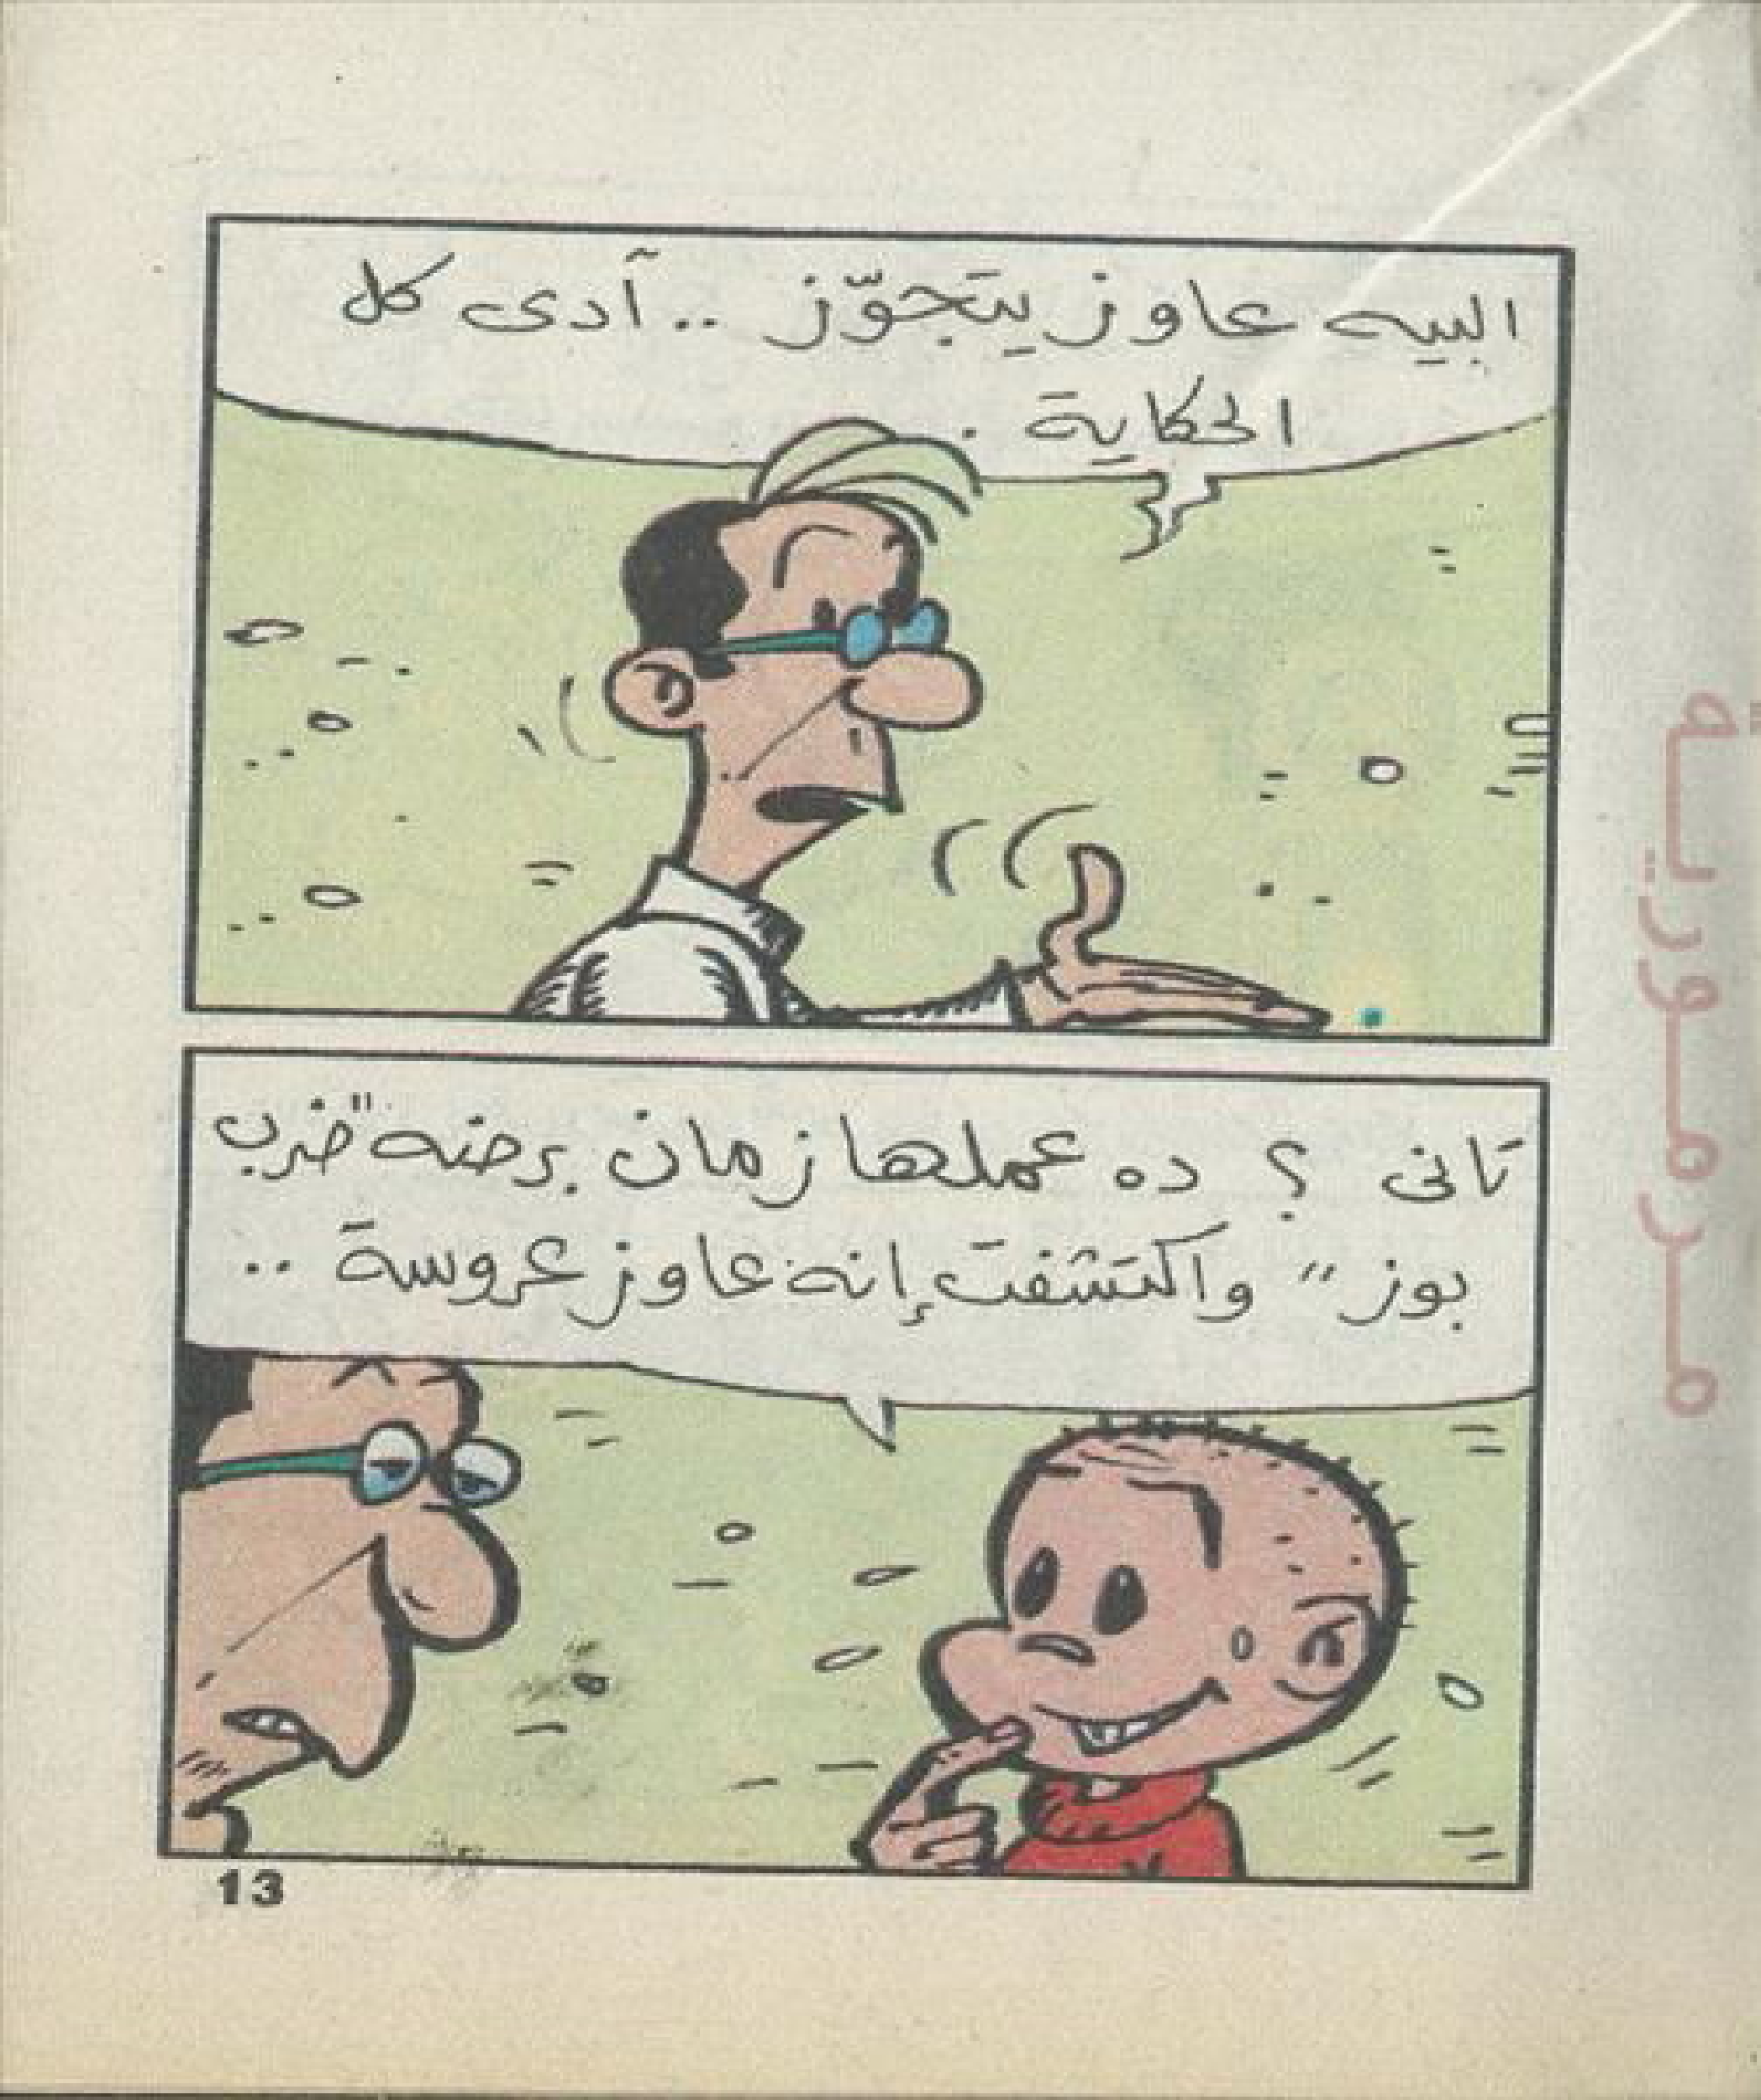 البيه عاوز يتجوّز .. آدى كل
الحكاية .
تانى ؟ ده عملها زمان برضه "ضرب
بوز" واكتشفت إنه عاوز عروسة ..
13
مرموريه